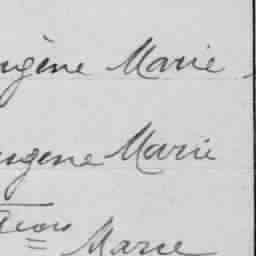 ugène Marie
ugene Marie
Marie